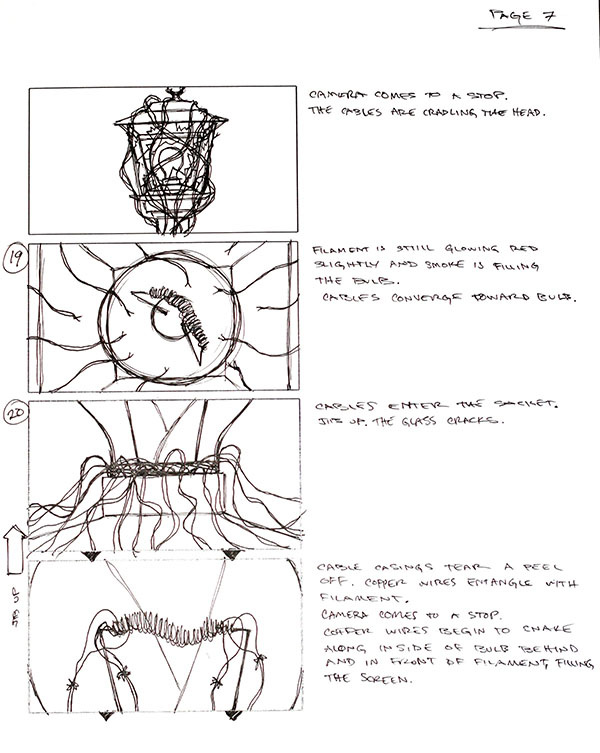 PAGE 7
CAMERA COMES TO A STOP.
THE CABLES ARE CRADLING THE HEAD.
19
FILAMENT IS STILL GLOWING RED
SLIGHTLY AND SMOKE IS FILLING
THE BULB.
CABLES CONVERGE TOWARD BULB.
20
CABLES ENTER THE SOCKET.
JIB UP. THE GLASS CRACKS.
JIB UP
CABLE CASINGS TEAR & PEEL
OFF. COPPER WIRES ENTANGLE WITH
FILAMENT.
CAMERA COMES TO A STOP.
COPPER WIRES BEGIN TO SNAKE
ALONG INSIDE OF BULB BEHIND
AND IN FRONT OF FILAMENT, FILLING
THE SCREEN.